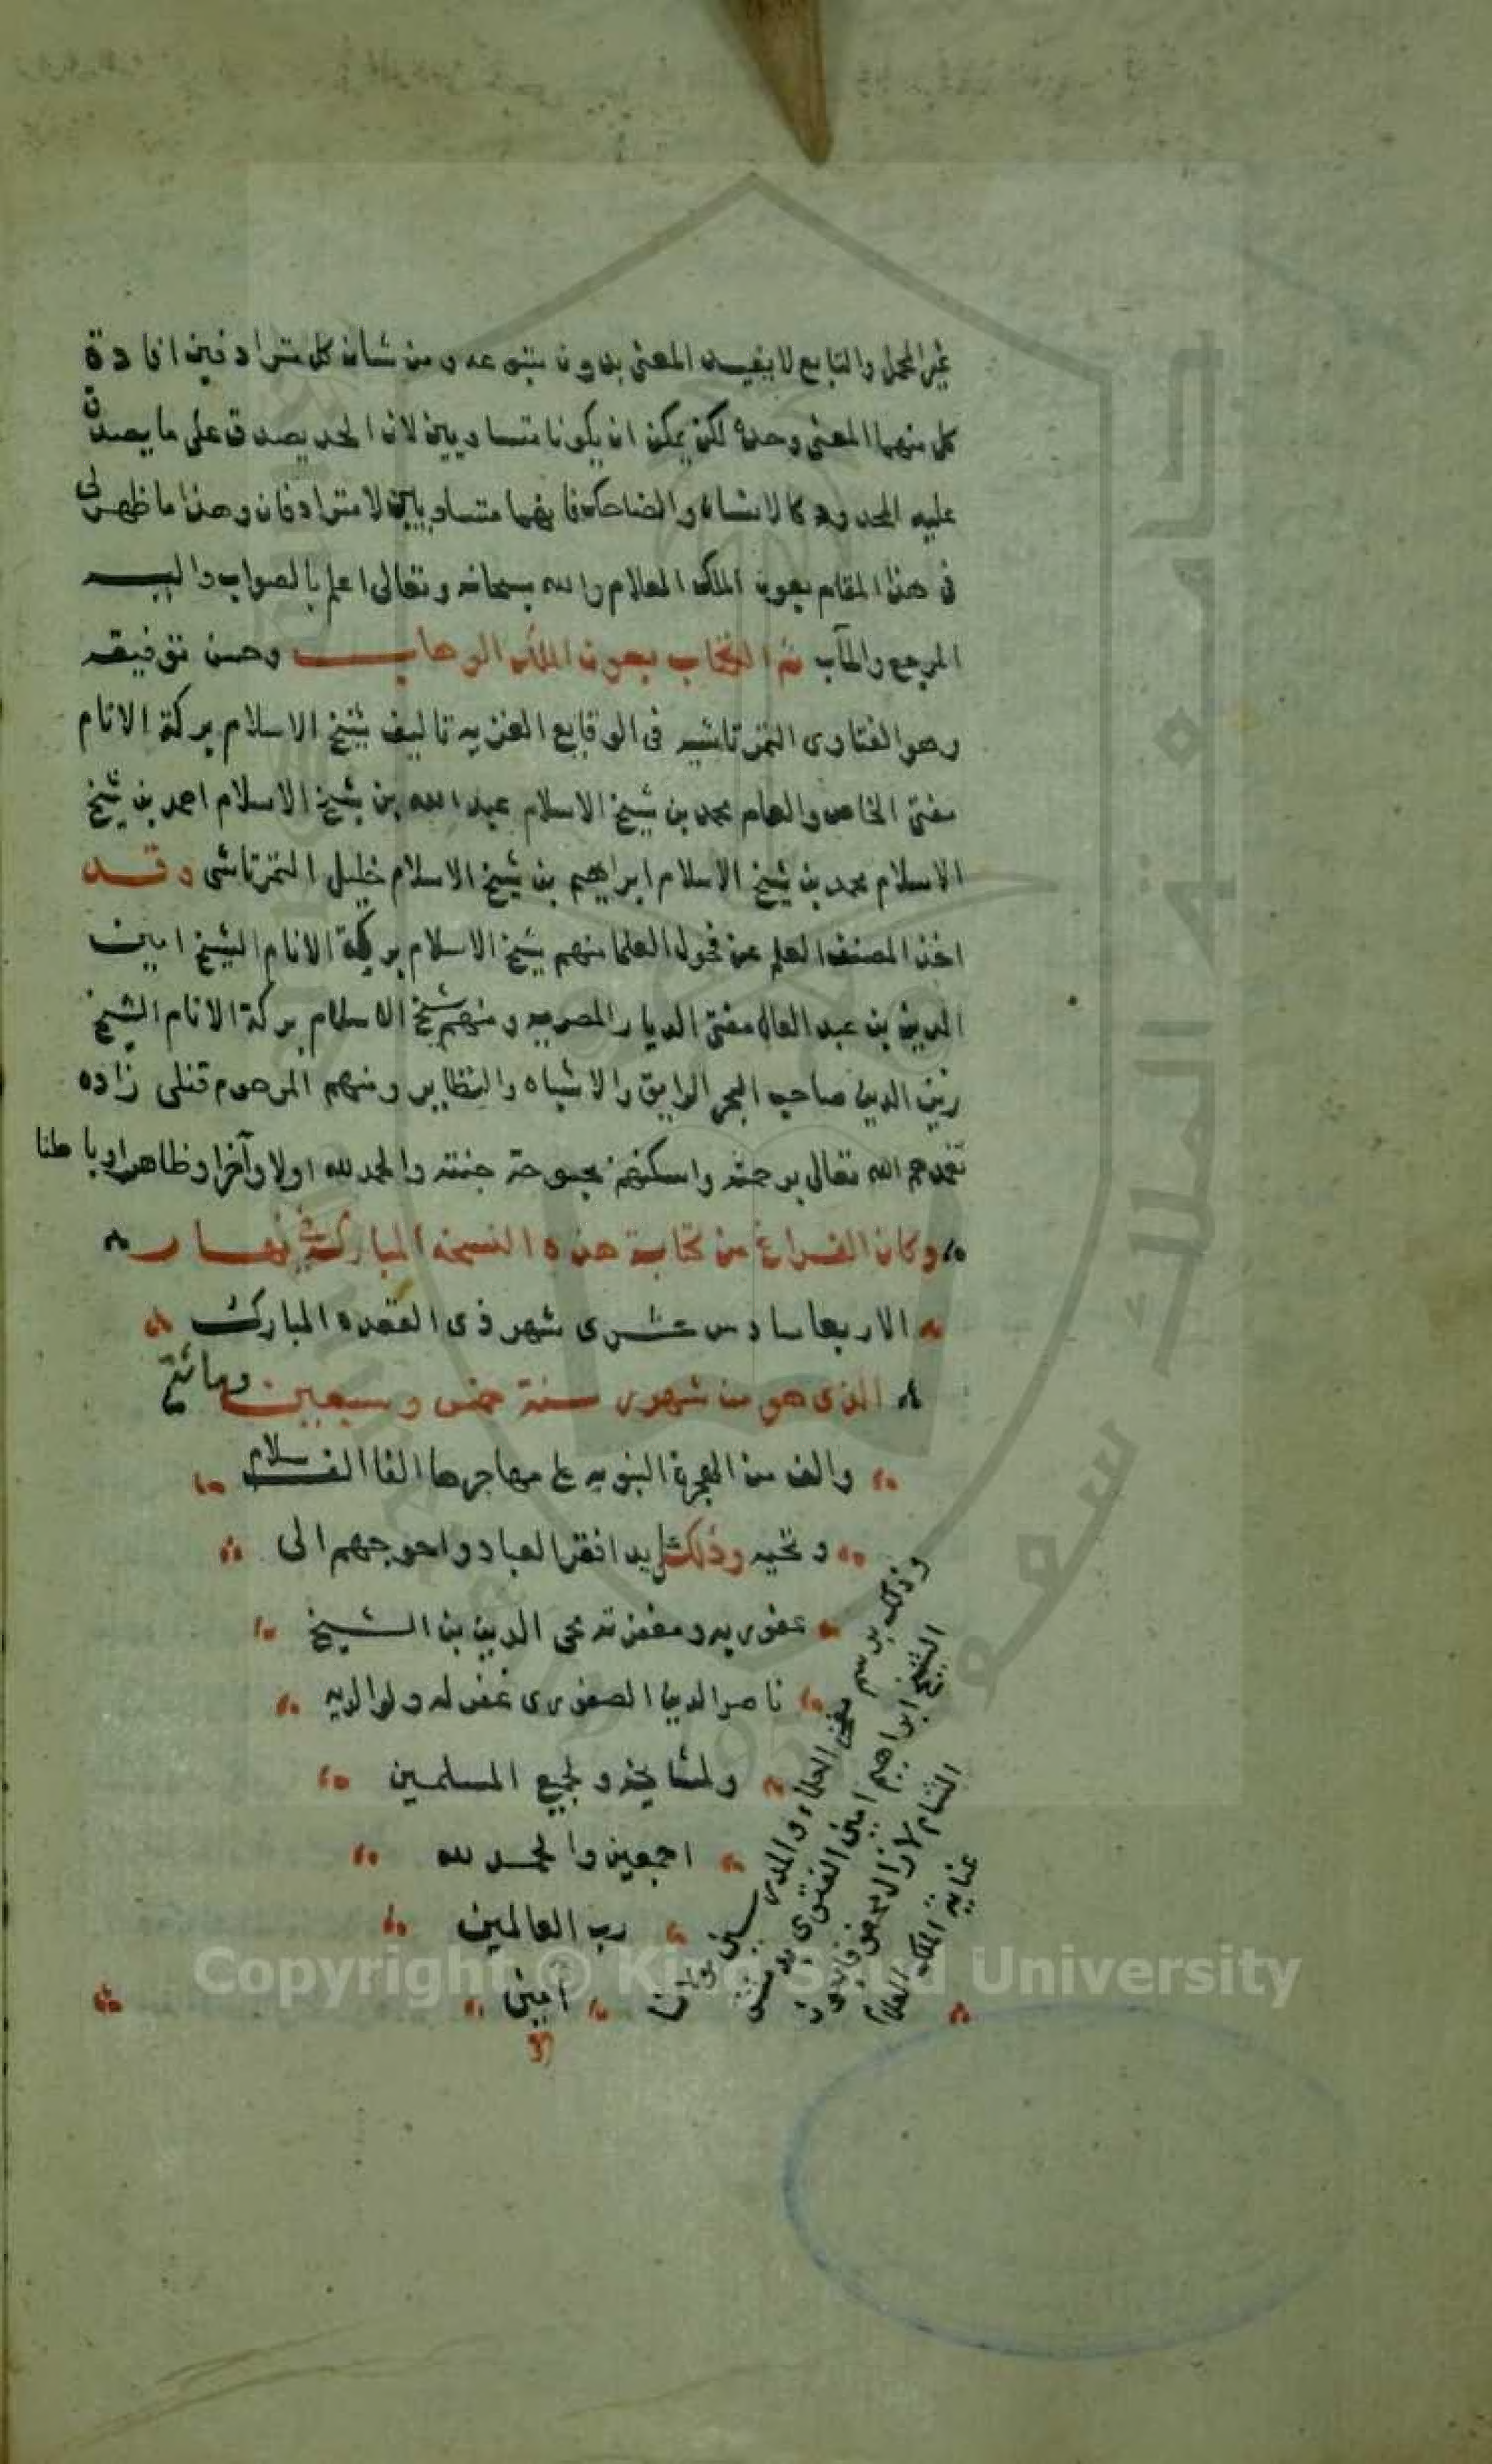 غير المجمل والتابع لا يفيد المعنى بدون متبوعه ومن شان كل مترادفين افادة
كل منهما المعنى وحده لكن يمكن ان يكونا متساويين لان الحد يصدق على ما يصدق
عليه المحدود كالانسان والضاحك فانهما متساويان لا مترادفان وهذا ما ظهر لى
فى هذا المقام بعون الملك العلام والله سبحانه وتعالى اعلم بالصواب واليه
المرجع والمآب تم الكتاب بعون الملك الوهاب وحسن توفيقه
وهو الفتاوى التمرتاشيه فى الوقايع الغزيه تاليف شيخ الاسلام بركة الانام
مفتى الخاص والعام محمد بن شيخ الاسلام عبد الله بن شيخ الاسلام احمد بن شيخ
الاسلام محمد بن شيخ الاسلام ابراهيم بن شيخ الاسلام خليل التمرتاشى وقد
اخذ المصنف العلم عن فحول العلما منهم شيخ الاسلام بركة الانام الشيخ امين
الدين بن عبد العال مفتى الديار المصريه ومنهم شيخ الاسلام بركة الانام الشيخ
زين الدين صاحب البحر الرايق والاشباه والنظاير ومنهم المرحوم قنلى زاده
تغمدهم الله تعالى برحمته واسكنهم بحبوحة جنته والحمد لله اولا وآخرا وظاهرا وباطنا
وكان الفراغ من كتابة هذه النسخة المباركة فى نهار
الاربعا سادس عشرى شهر ذى القعده المبارك
الذى هو من شهور سنة خمس وسبعين ومائة
والف من الهجرة النبويه على مهاجرها الفا الف سلام
وتحيه وذلك على يد افقر العباد واحوجهم الى
عفو ربه ومغفرته محى الدين بن الشيخ
ناصر الدين الصفورى غفر له ولوالديه
ولمشايخه ولجميع المسلمين
اجمعين والحمد لله
رب العالمين
امين
وذلك برسم فخر العلماء والمدرسين مولانا
الشيخ ابراهيم امين الفتوى بدمشق
الشام لا زال
عناية الملك العلام
Copyright © King Saud University
جامعة الملك سعود